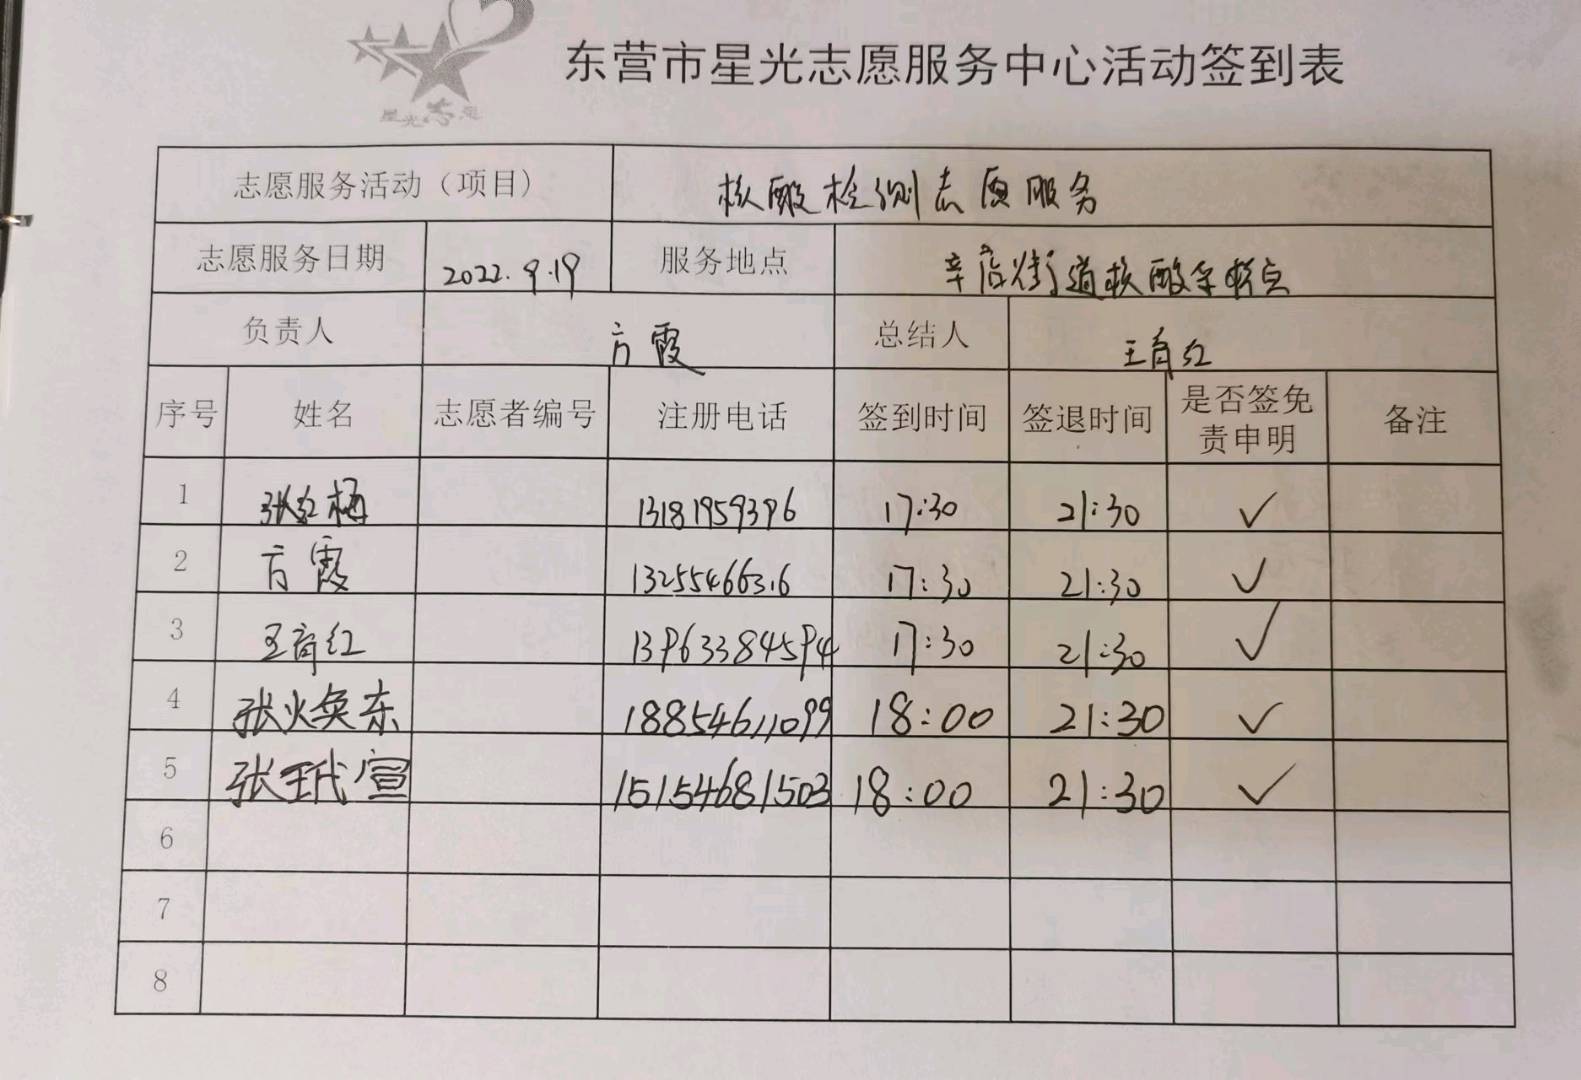 星光志愿
东营市星光志愿服务中心活动签到表
志愿服务活动（项目） 核酸检测志愿服务
志愿服务日期 2022.9.19 服务地点 辛店街道核酸采样点
负责人 方霞 总结人 王育红
序号 姓名 志愿者编号 注册电话 签到时间 签退时间 是否签免责申明 备注
1 张红梅 13181959396 17:30 21:30 ✓
2 方霞 17:30 21:30 ✓
3 王育红 13963384594 17:30 21:30 ✓
4 张焕东 18854611099 18:00 21:30 ✓
5 张玳瑄 15154681503 18:00 21:30 ✓
6
7
8